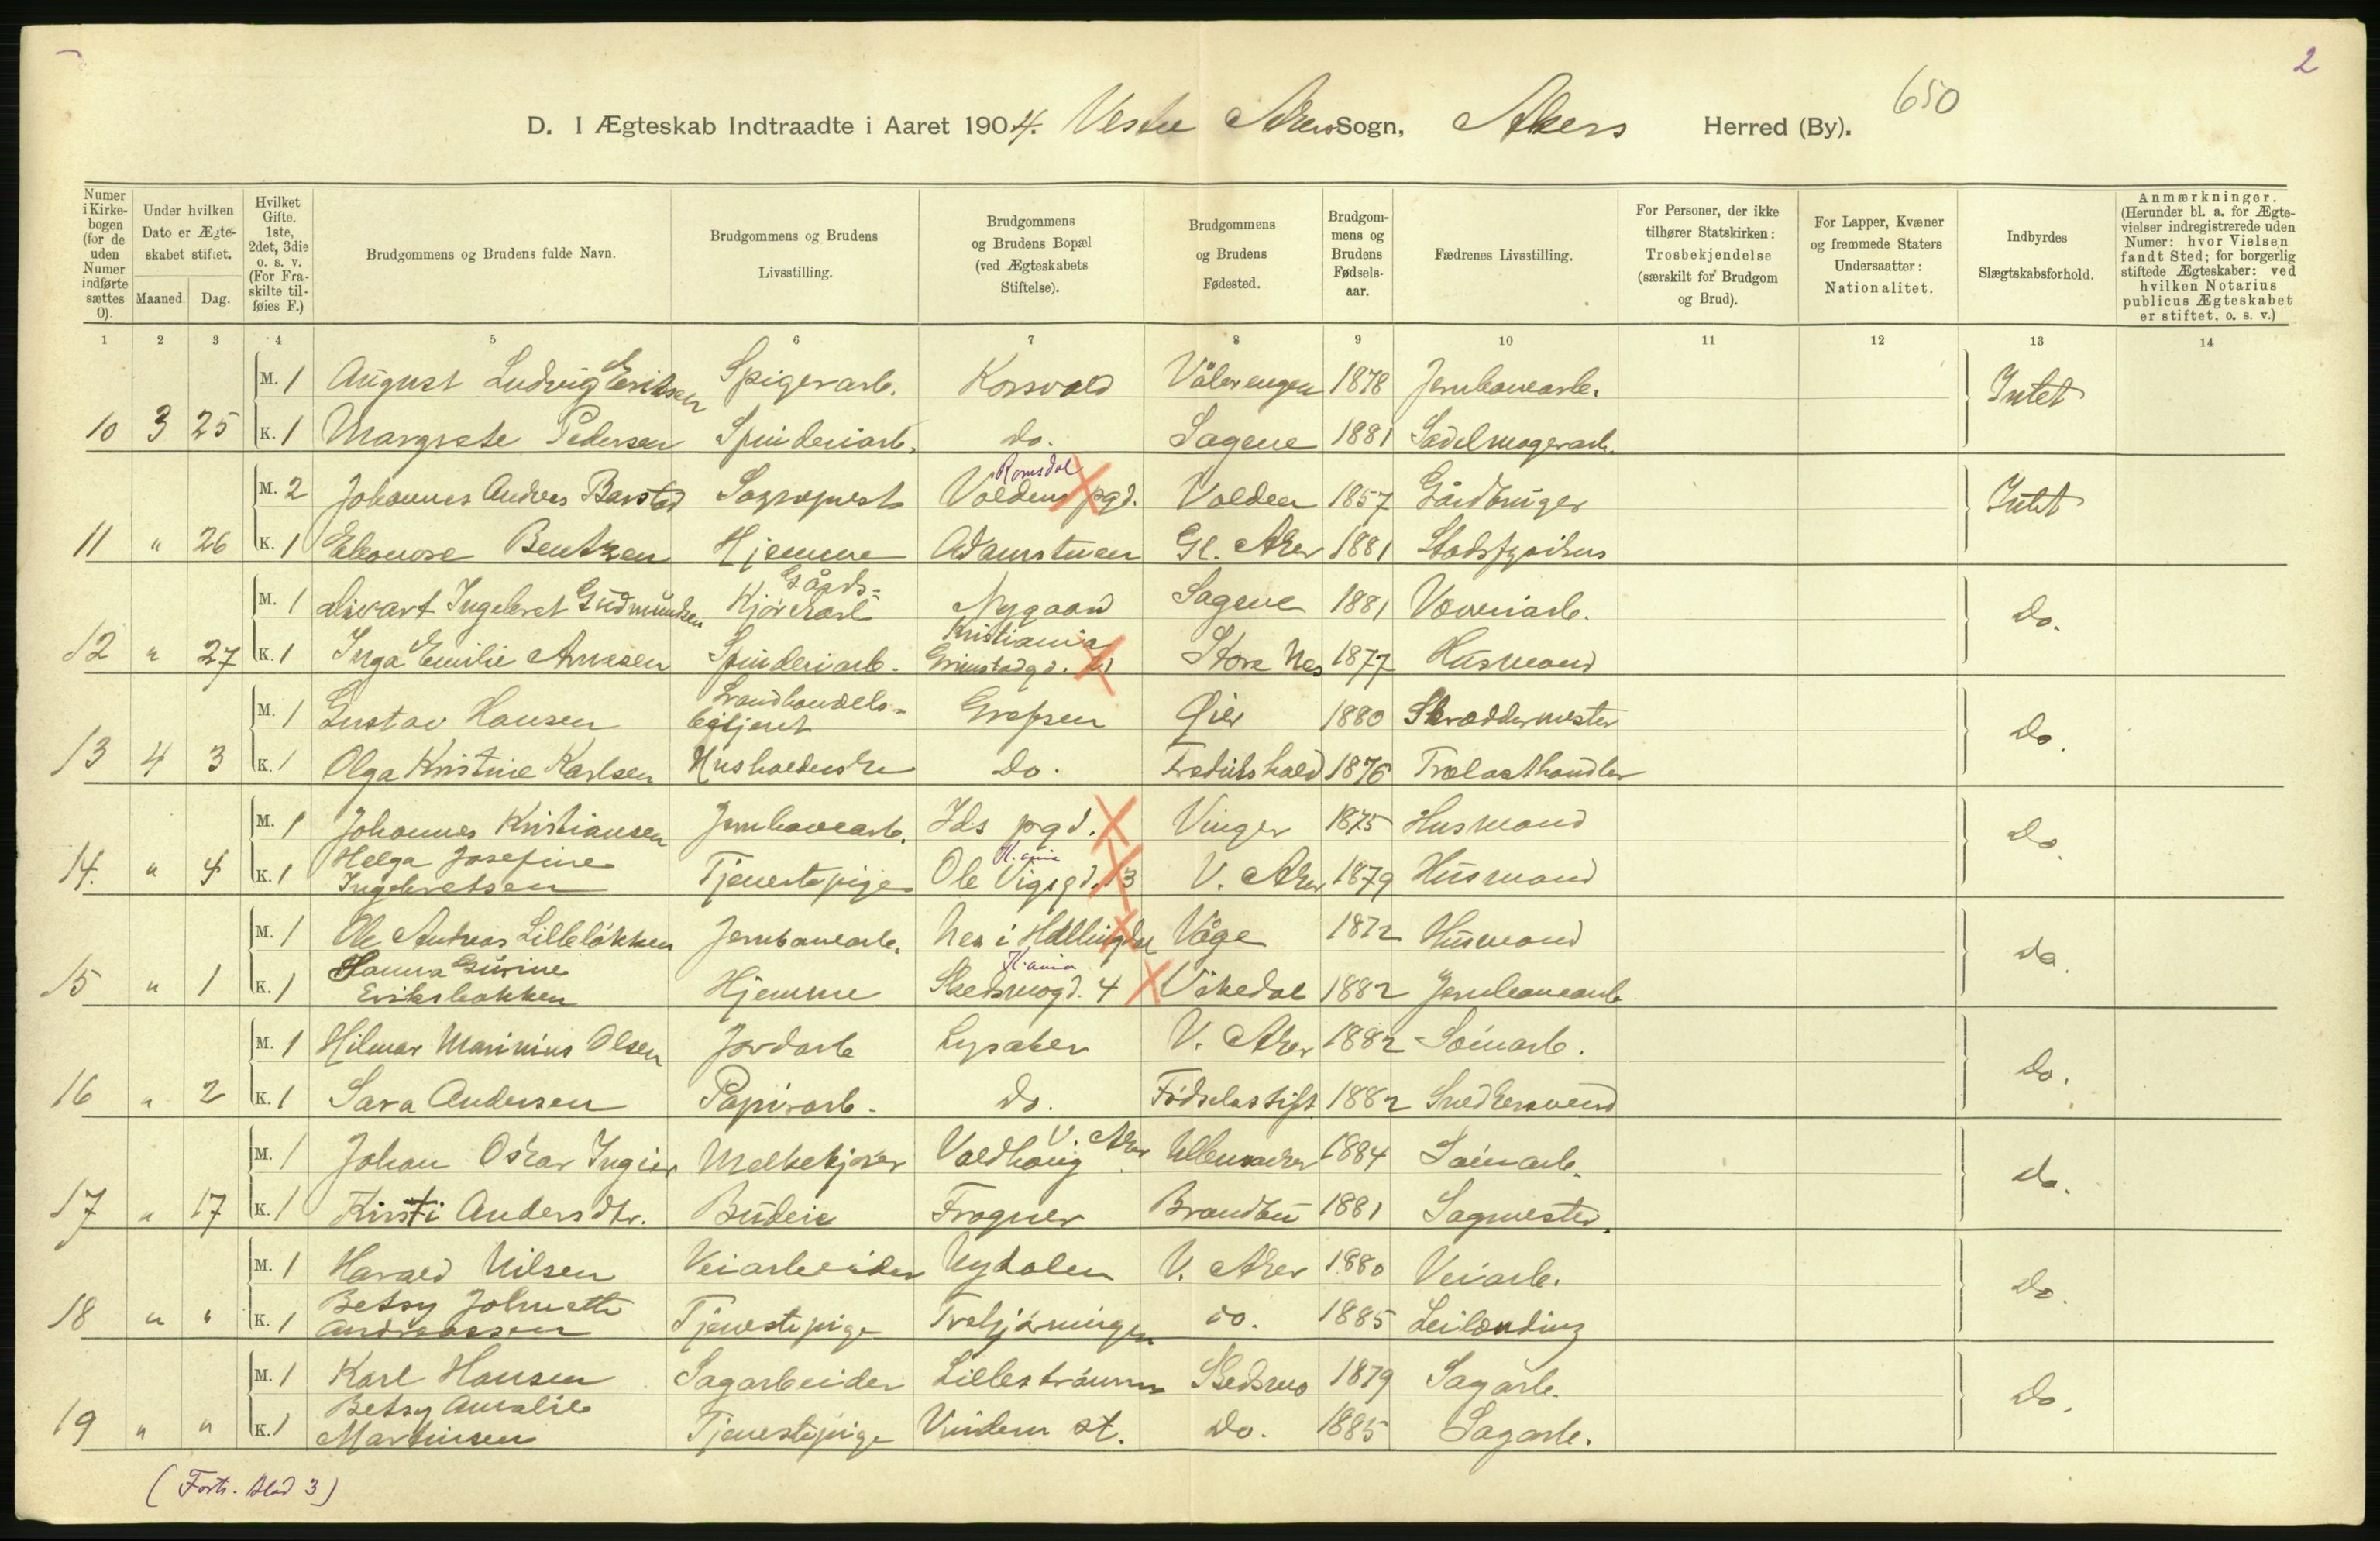 2
650
D. I Ægteskab Indtraadte i Aaret 1904. Vestre Akers Sogn, Akers Herred (By).
Numer i Kirkebogen (for de uden Numer indførte sættes 0).
Under hvilken Dato er Ægteskabet stiftet.
Maaned. Dag.
Hvilket Gifte. 1ste, 2det, 3die o. s. v. (For Fraskilte tilføies F.)
Brudgommens og Brudens fulde Navn.
Brudgommens og Brudens Livsstilling.
Brudgommens og Brudens Bopæl (ved Ægteskabets Stiftelse).
Brudgommens og Brudens Fødested.
Brudgommens og Brudens Fødselsaar.
Fædrenes Livsstilling.
For Personer, der ikke tilhører Statskirken: Trosbekjendelse (særskilt for Brudgom og Brud).
For Lapper, Kvæner og fremmede Staters Undersaatter: Nationalitet.
Indbyrdes Slægtskabsforhold.
Anmærkninger. (Herunder bl. a. for Ægtevielser indregistrerede uden Numer: hvor Vielsen fandt Sted; for borgerlig stiftede Ægteskaber: ved hvilken Notarius publicus Ægteskabet er stiftet, o. s. v.)
1 2 3 4 5 6 7 8 9 10 11 12 13 14
M. 1 August Ludvig Eriksen Spigerarb. Korsvold Vålerengen 1878 Jernbanearb. Intet
10 3 25 K. 1 Margrete Pedersen Spinderiarb. do. Sagene 1881 Sadelmagerarb.
M. 2 Johannes Andres Barstad Sogneprest Voldens pgd. Romsdal Volden 1857 Gårdbruger Intet
11 " 26 K. 1 Eleonore Bentzen Hjemme Adamstuen Gl. Aker 1881 Stadsfysikus
M. 1 Sivart Ingebret Gudmundsen Gårds= Kjørekarl Nygaard Sagene 1881 Væveriarb. do.
12 " 27 K. 1 Inga Emilie Arnesen Spinderiarb. Kristiania Grimstadgd. Store Nes 1877 Husmand
M. 1 Gustav Hansen Landhandels= betjent Grefsen Øier 1880 Skræddermester do.
13 4 3 K. 1 Olga Kristine Karlsen Husholderske do. Fredrikshald 1876 Trælasthandler
M. 1 Johannes Kristiansen Jernbanearb. Ids pgd. Vinger 1875 Husmand do.
14. " 4 K. 1 Helga Josefine Ingebretsen Tjenestepige K.ania Ole Vigsgd. 13 V. Aker 1879 Husmand
M. 1 Ole Andreas Lilleløkken Jernbanearb. Nes i Hallingdal Våge 1872 Husmand do.
15 " 1 K. 1 Hanna Gurine Eriksbakken Hjemme K.ania Skedsmogd. 4 Vikedal 1882 Jernbanearb
M. 1 Hilmar Marinius Olsen Jordarb Lysaker V. Aker 1882 Løinarb. do.
16 " 2 K. 1 Sara Andersen Papirarb. do. Fødselsstift. 1882 Snedkersvend
M. 1 Johan Oskar Ingier Melkekjører Voldhaug V. Aker Ullensaker 1884 Løinarb. do.
17 " 17 K. 1 Kirsti Andersdtr. Budeie Frogner Brandbu 1881 Sagmester.
M. 1 Harald Nilsen Veiarbeider Nydalen V. Aker 1880 Veiarb. do.
18 " " K. 1 Betsy Johnette Andreassen Tjenestepige do. 1885 Leilænding
M. 1 Karl Hansen Sagarbeider Lillestrømmen Skedsmo 1879 Sagarb. do.
19 " " K. 1 Betsy Amalie Martinsen Tjenestepige Vindern st. do. 1885 Sagarb.
(Forts. blad 3)